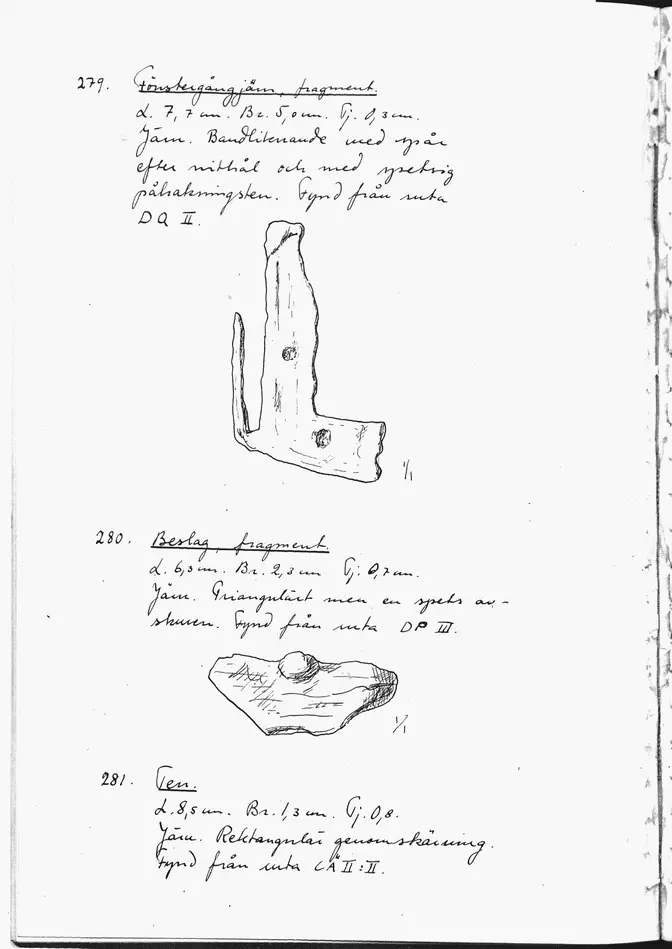 279. Fönstergångjärn, fragment.
L. 7,7 cm. Br. 5,0 cm. Tj. 0,3 cm.
Järn. Bandliknande med spår
efter nithål och med spetsig
påhakningsten. Fynd från ruta
DQ II.
1/1
280. Beslag, fragment.
L. 6,3 cm. Br. 2,3 cm Tj. 0,7 cm.
Järn. Triangulärt men en spets av-
skuren. Fynd från ruta DP III.
1/1
281. Ten.
L. 8,5 cm. Br. 1,3 cm. Tj. 0,8.
Järn. Rektangulär genomskärning.
Fynd från ruta CÄ II:II.